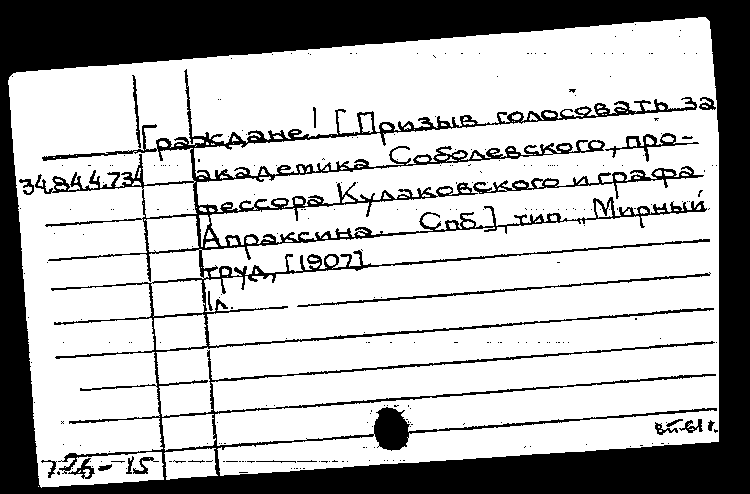 Граждане! [Призыв голосовать за
34.84.4.734 академика Соболевского, про-
фессора Кулаковского и графа
Апраксина. Спб.], тип. „Мирный
труд„ [1907]
1л.
126-15